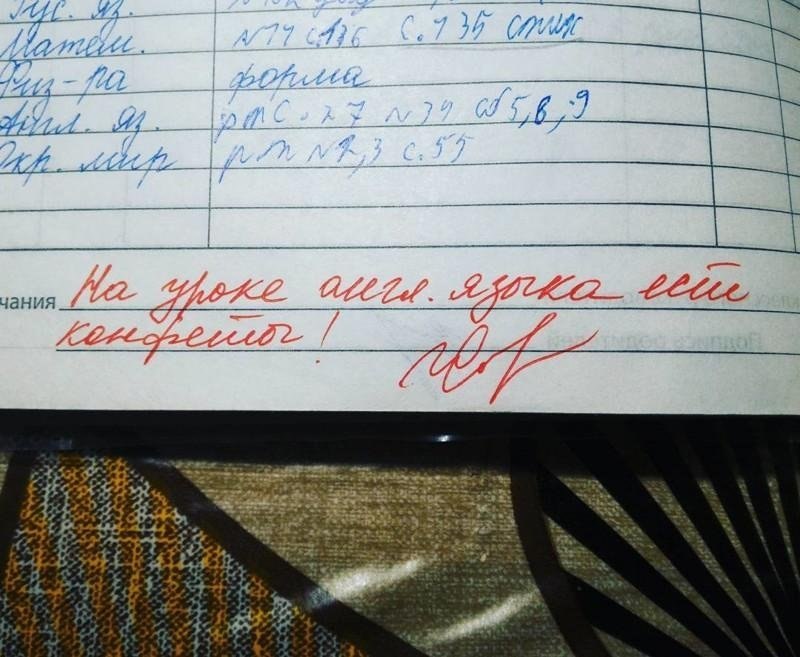 Рус. яз.
Матем. №14 с.136 с.135 стих
Физ-ра форма
Англ. яз. рт с.27 №34 сб 5, 8, 9
Окр. мир рт №2,3 с.55
чания На уроке англ. языка ест
конфеты!
Подпись родителей